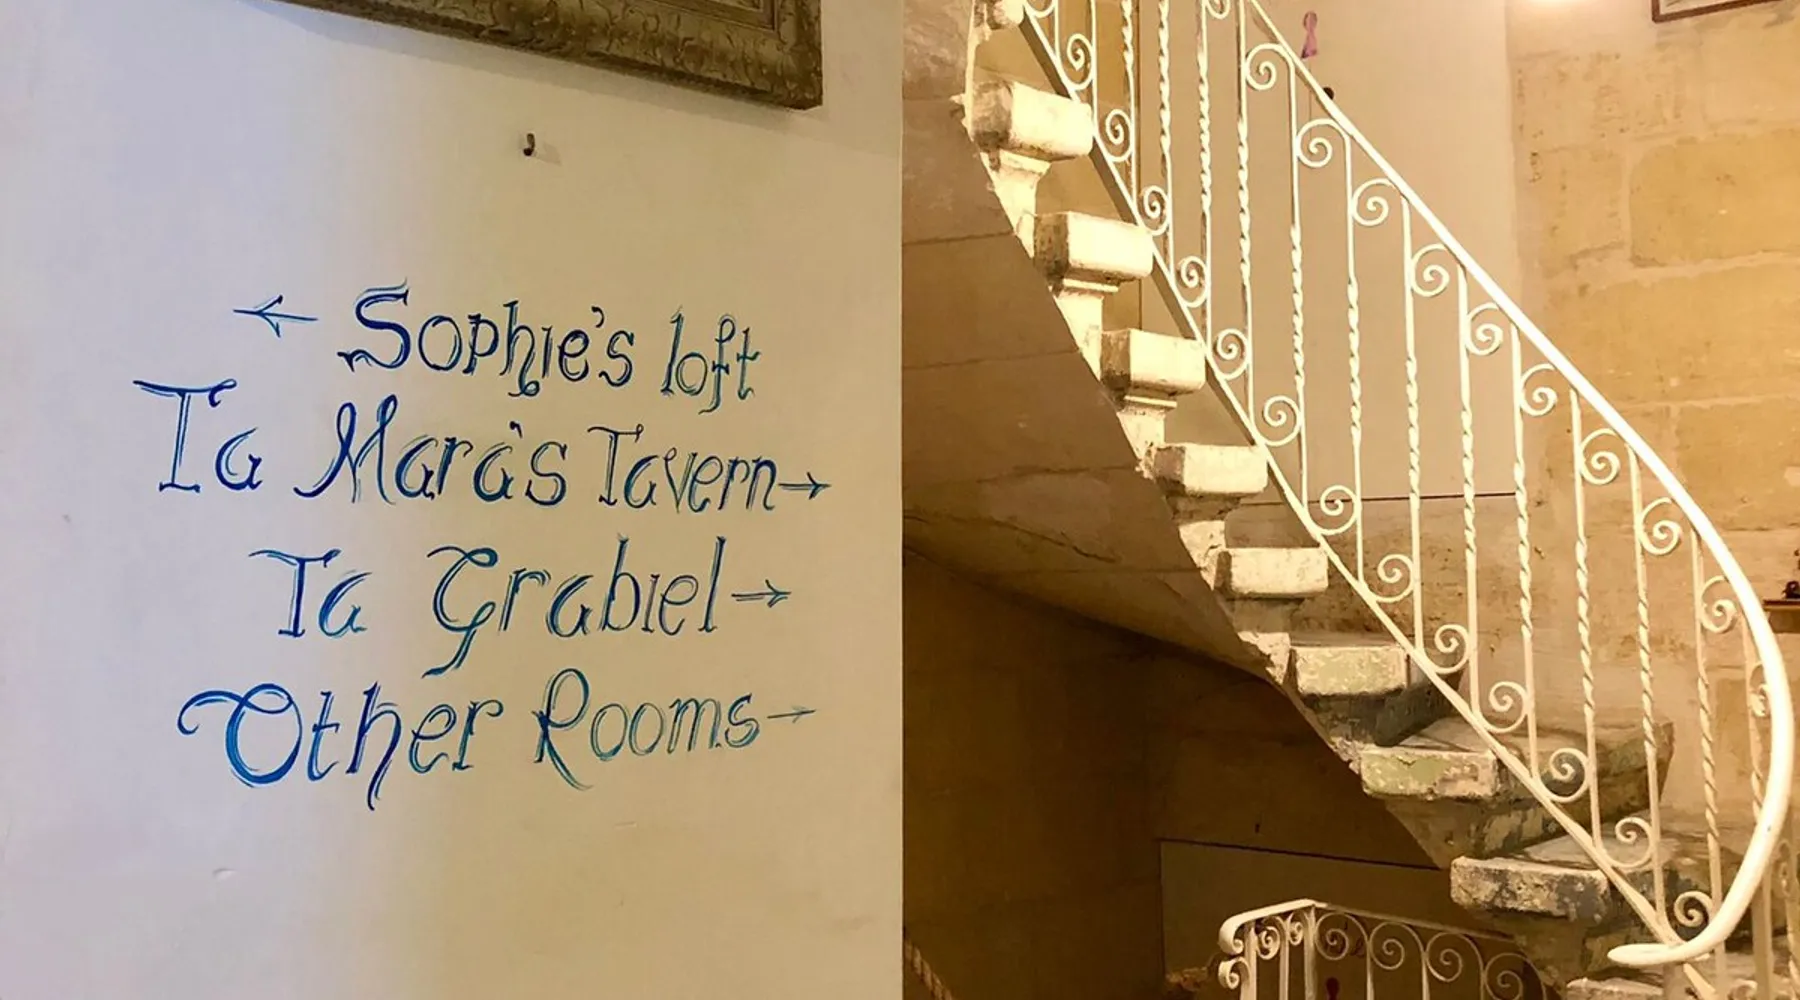 ← Sophie's loft
Ta Mara's Tavern →
Ta Grabiel →
Other Rooms →